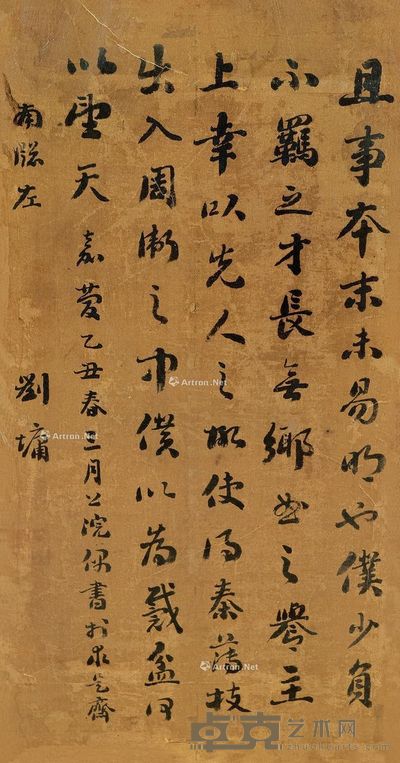 且事本末未易明也僕少負
不羈之才長無鄉曲之譽主
上幸以先人之故使得奏薄技
出入周衛之中僕以為戴盆何
以望天 嘉慶乙丑春月院偶書於求是齋
南左 劉墉
Artron.Net
Artron.Net
Artron.Net
Artron.Net
卓克艺术网